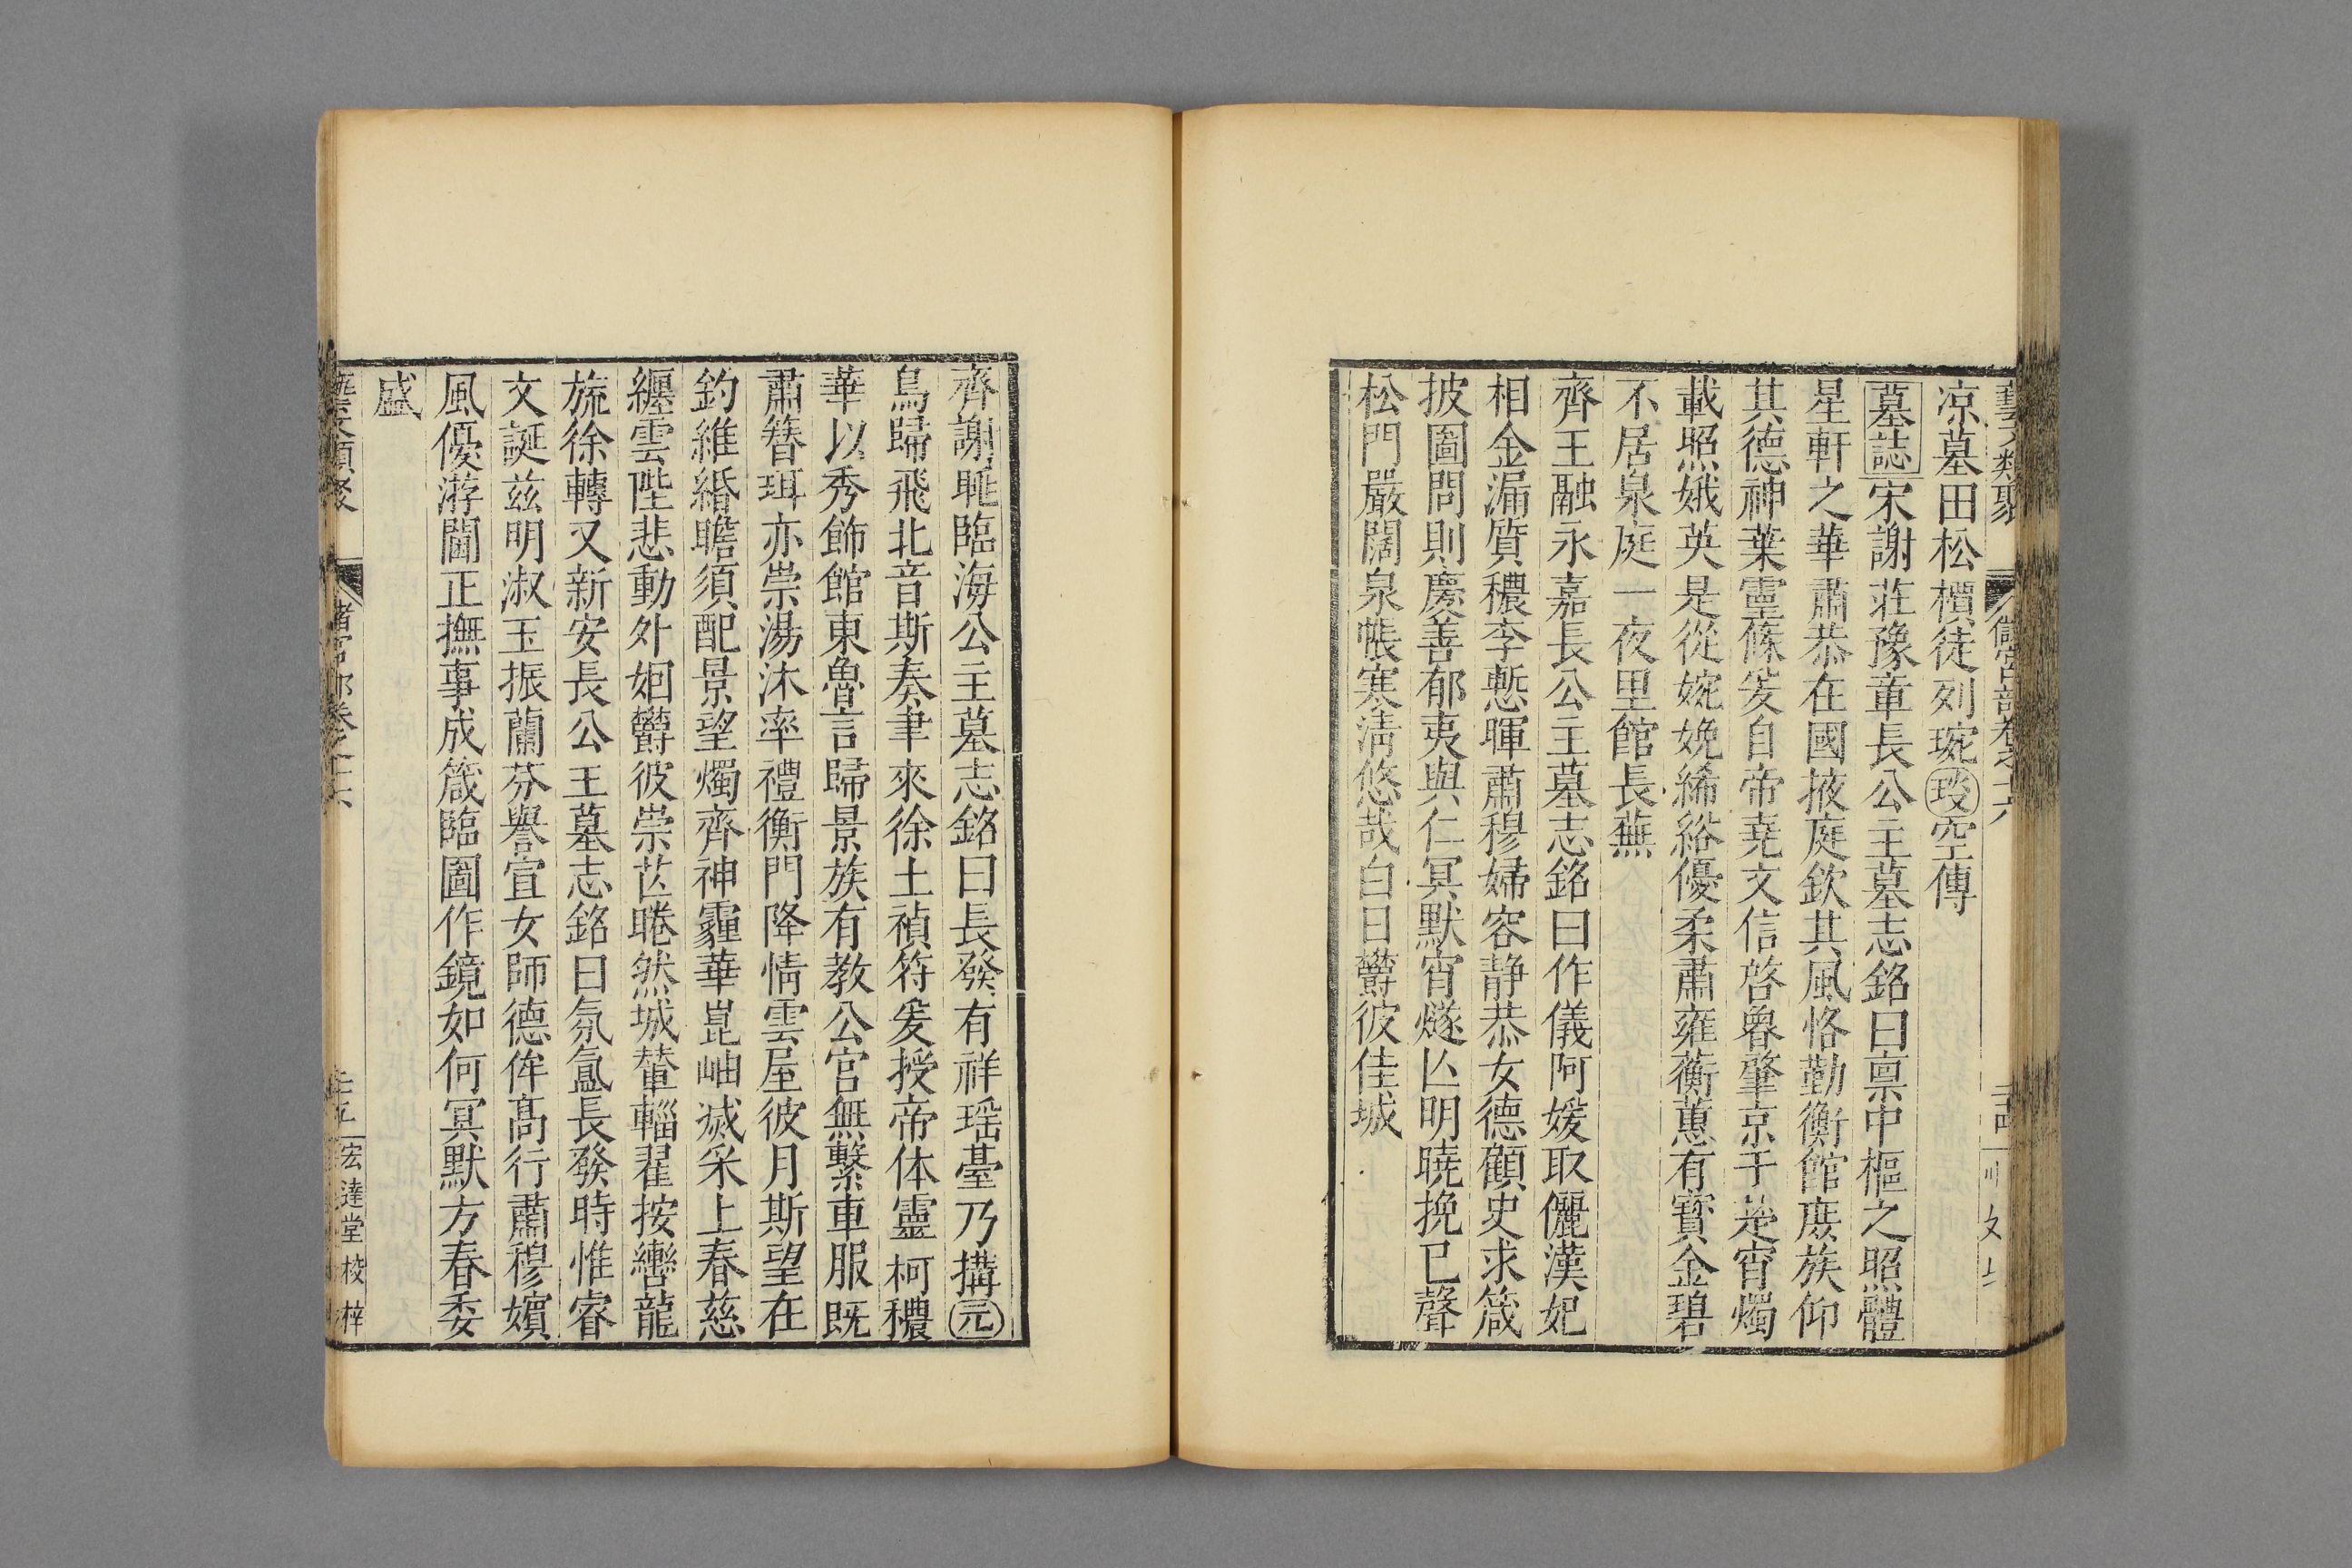 藝文類聚 儲宮部卷之十六
凉墓田松檟徒列琬琰空傳
墓誌宋謝莊豫章長公主墓志銘曰禀中樞之照體
星軒之華肅恭在國掖庭欽其風恪勤衡館庶族仰
其德神葉靈條爰自帝堯文信啓魯肇京于楚宵燭
載照娥英是從婉娩絺綌優柔肅雍蘅蕙有寳金碧
不居泉庭一夜里館長蕪
齊王融永嘉長公主墓志銘曰作儀阿媛取儷漢妃
相金漏質穠李慙暉肅穆婦容静恭女德顧史求箴
披圖問則慶善郁夷與仁冥默宵燧亾明曉挽已聲
松門嚴闊泉帳寒淸悠哉白日欝彼佳城
齊謝朓臨海公主墓志銘曰長發有祥瑶臺乃搆元
鳥歸飛北音斯奏聿來徐土禎符爰授帝体靈柯穠
華以秀飾館東魯言歸景族有教公宮無繫車服既
肅簪珥亦崇湯沐率禮衡門降情雲屋彼月斯望在
釣維緡瞻須配景望燭齊神靈華崑岫滅采上春慈
纒雲陛悲動外姻欝彼崇芒睠然城輦輜翟按轡龍
旒徐轉又新安長公王墓志銘曰氛氳長發時惟睿
文誕兹明淑玉振蘭芬譽宣女師德侔髙行肅穆嬪
風優游閫正撫事成箴臨圖作鏡如何冥默方春委
盛
藝文類聚 儲宮部卷之十六 宏達堂校梓